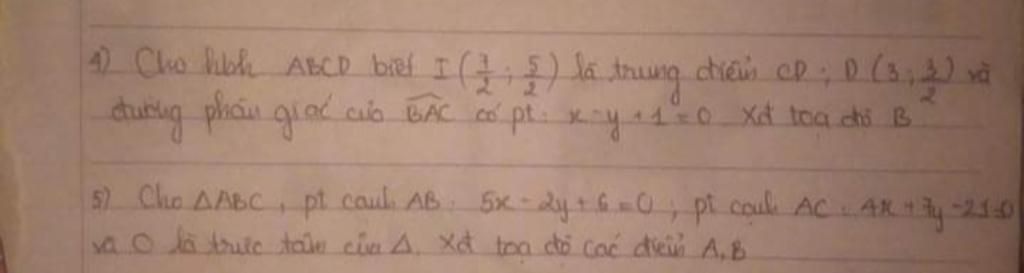 4) Cho hbh ABCD biết I (7/2 ; 5/2) là trung điểm CD ; D (3 ; 3/2) và
đường phân giác của BAC có pt : x - y + 1 = 0 Xđ toạ độ B
5) Cho ΔABC, pt cạnh AB : 5x - 2y + 6 = 0 ; pt cạnh AC : 4x + 7y - 21 = 0
và O là trực tâm của Δ. Xđ toạ độ các điểm A, B